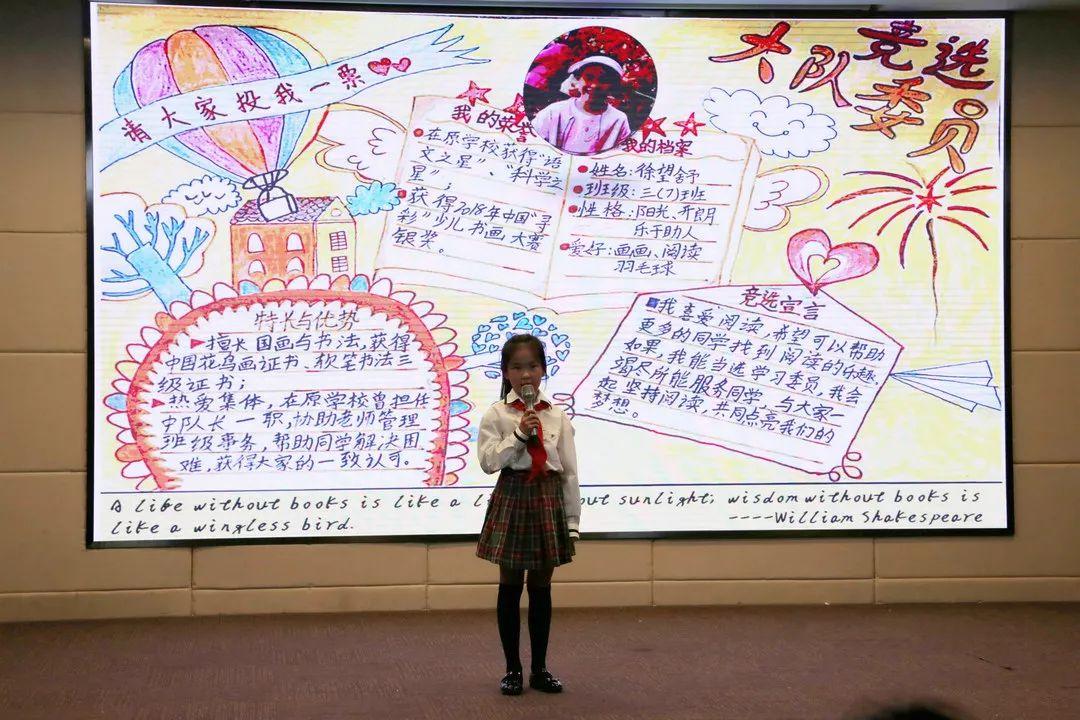 请大家投我一票
竞选
大队委员
我的荣誉
在原学校获得"语
文之星"、"科学之
星";
获得2018年中国"寻
彩"少儿书画大赛
银奖。
我的档案
姓名:徐望舒
班级:三(7)班
性格:阳光、开朗
乐于助人
爱好:画画、阅读
羽毛球
特长与优势
擅长国画与书法,获得
中国花鸟画证书、软笔书法三
级证书;
热爱集体,在原学校曾担任
中队长一职,协助老师管理
班级事务,帮助同学解决困
难,获得大家的一致认可。
竞选宣言
我喜爱阅读,希望可以帮助
更多的同学找到阅读的乐趣,
如果,我能当选学习委员,我会
竭尽所能服务同学,与大家一
起坚持阅读,共同点亮我们的
梦想。
A life without books is like a li out sunlight; wisdom without books is
like a wingless bird.
----William Shakespeare